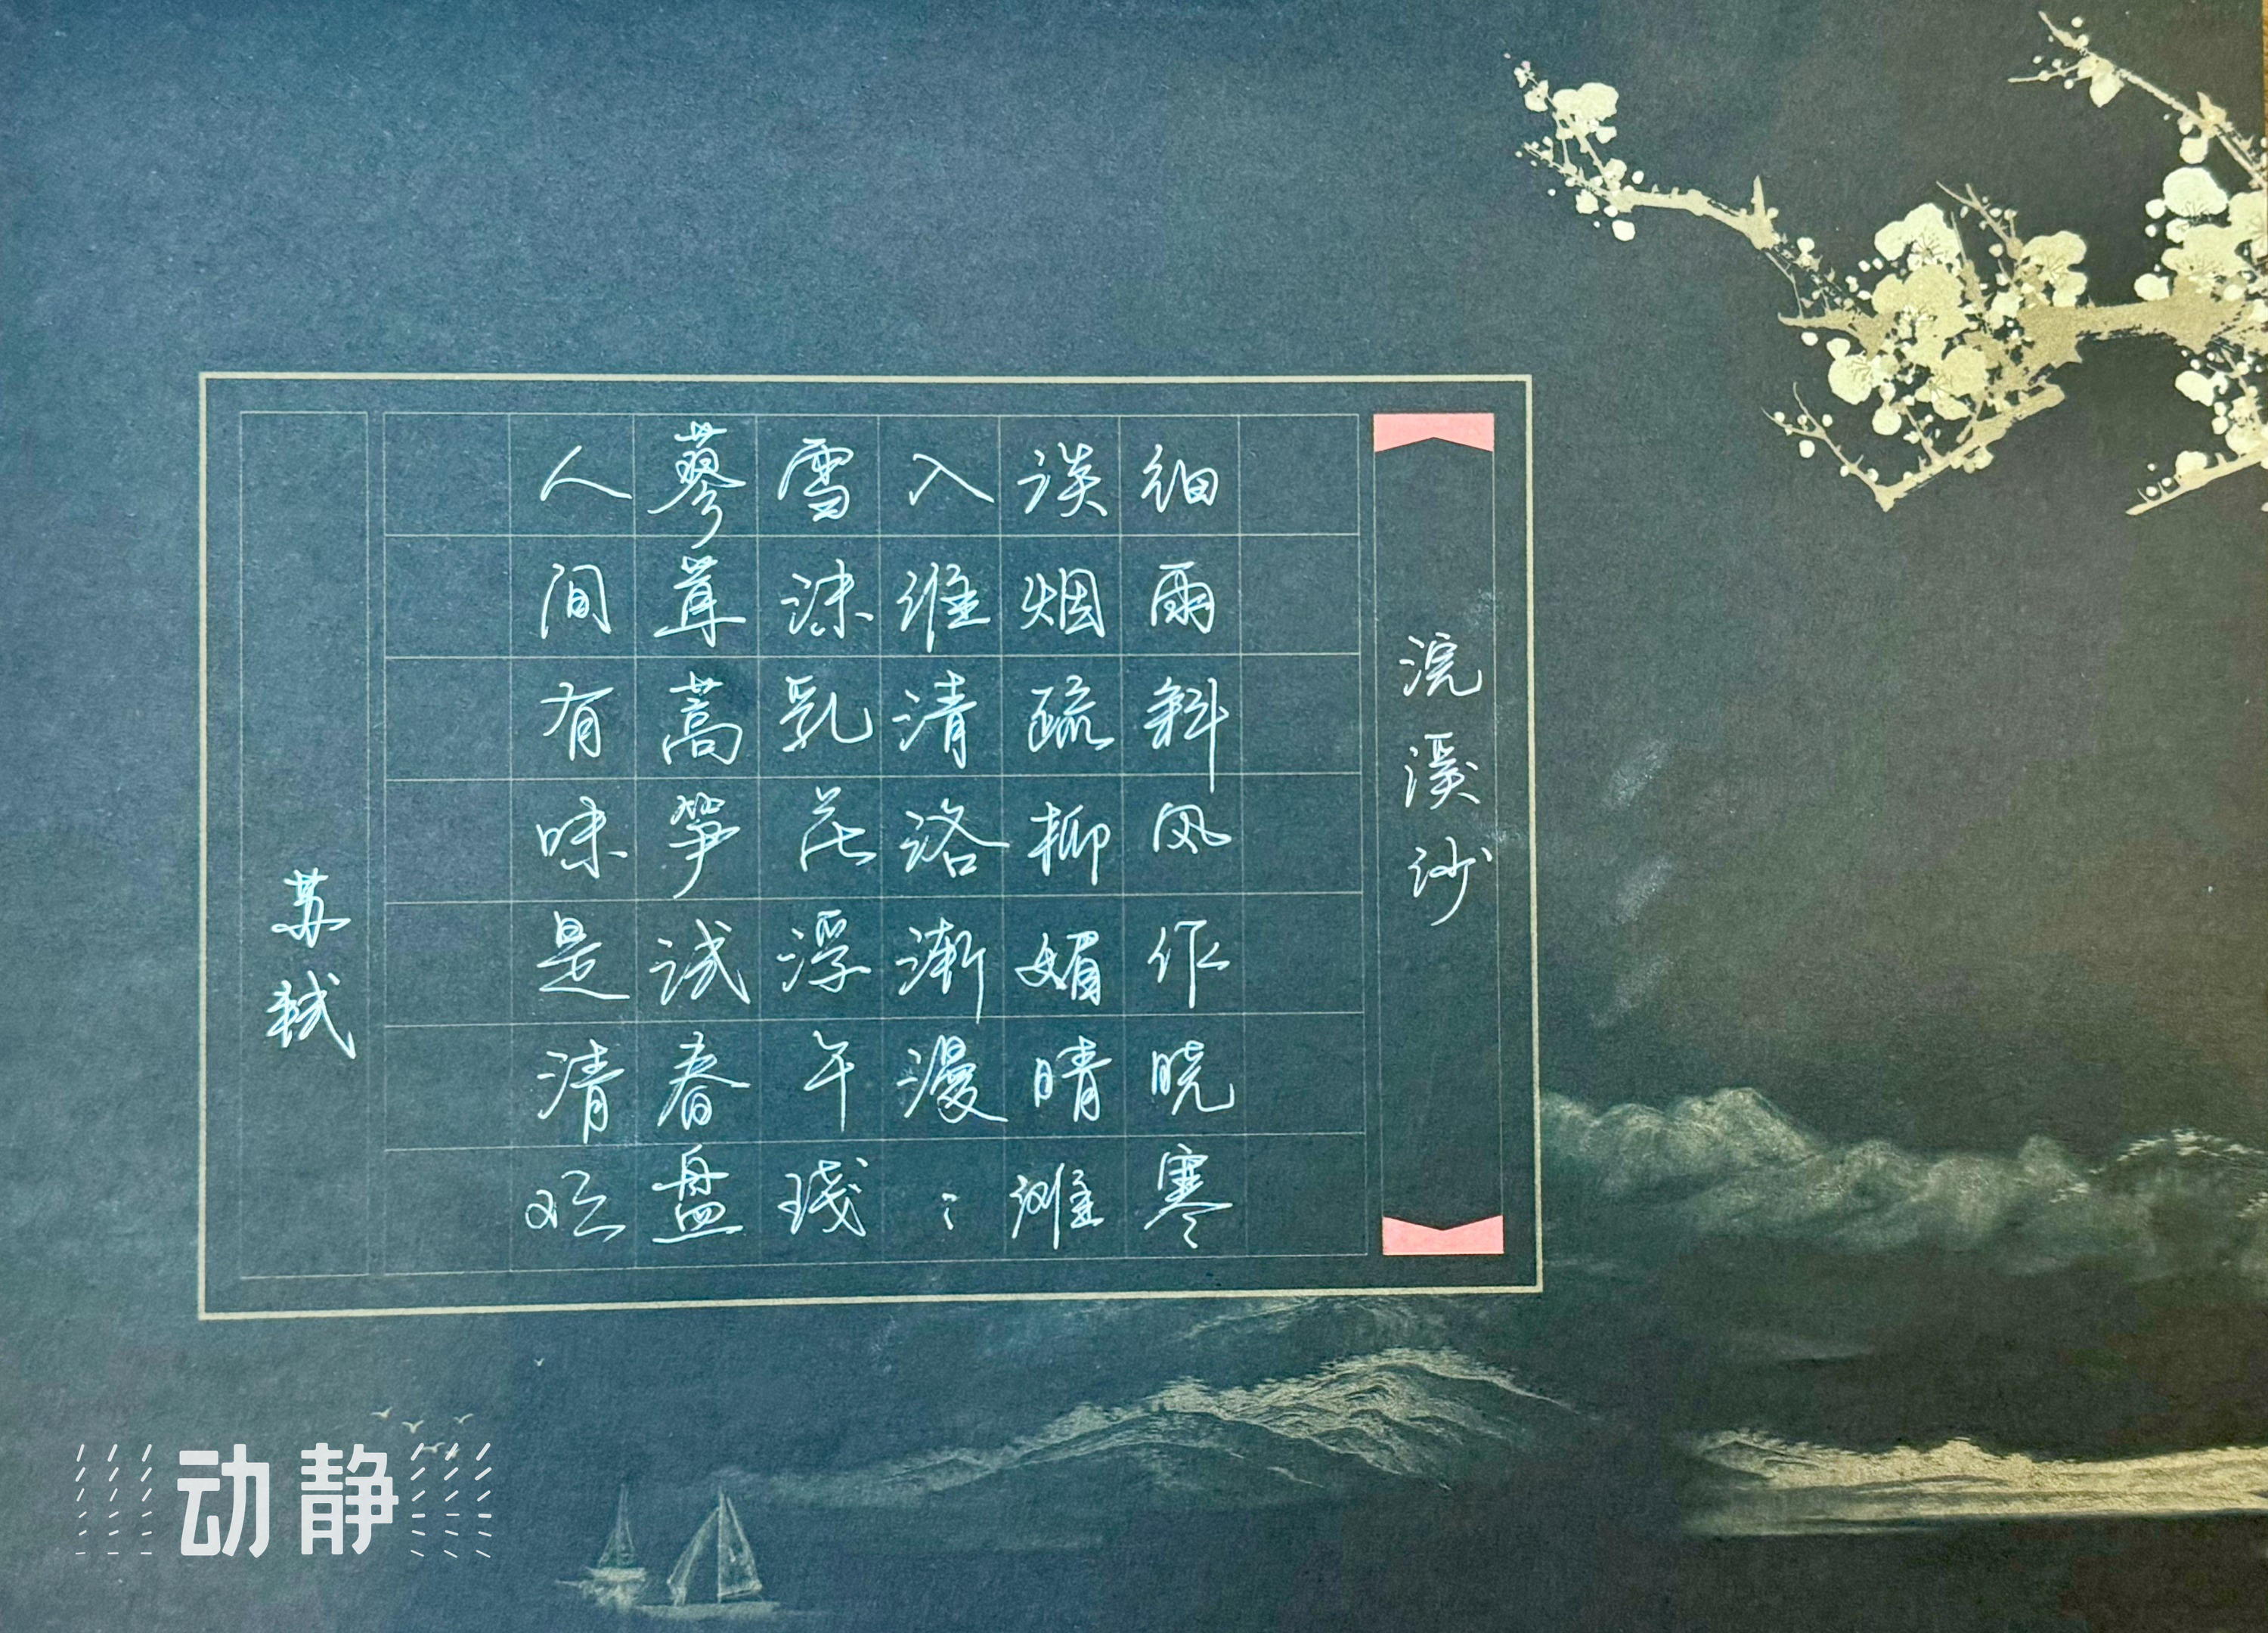 浣溪沙
细雨斜风作晓寒
淡烟疏柳媚晴滩
入淮清洛渐漫々
雪沫乳花浮午琖
蓼茸蒿笋试春盘
人间有味是清欢
苏轼
动静